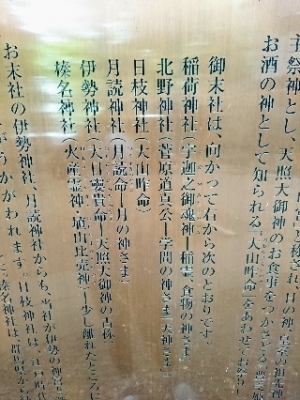 主祭神とし、天照大御神のお食事をつかさどる
お酒の神として知られる「大山咋命」をあわせてお祀りし
御末社は、向かって右から次のとおりです。
稲荷神社（宇迦之御魂神―稲霊、食物の神さま）
北野神社（菅原道真公―学問の神さま「天神さま」）
日枝神社（大山咋命）
月読神社（月読命―月の神さま）
伊勢神社（大日孁貴命―天照大御神の古称
榛名神社（火産霊神・埴山比売神―少し離れたところに
お末社の伊勢神社、月読神社からも、当社が伊勢の神宮
うかがわれます。日枝神社は、江戸時代
榛名神社は、群馬県